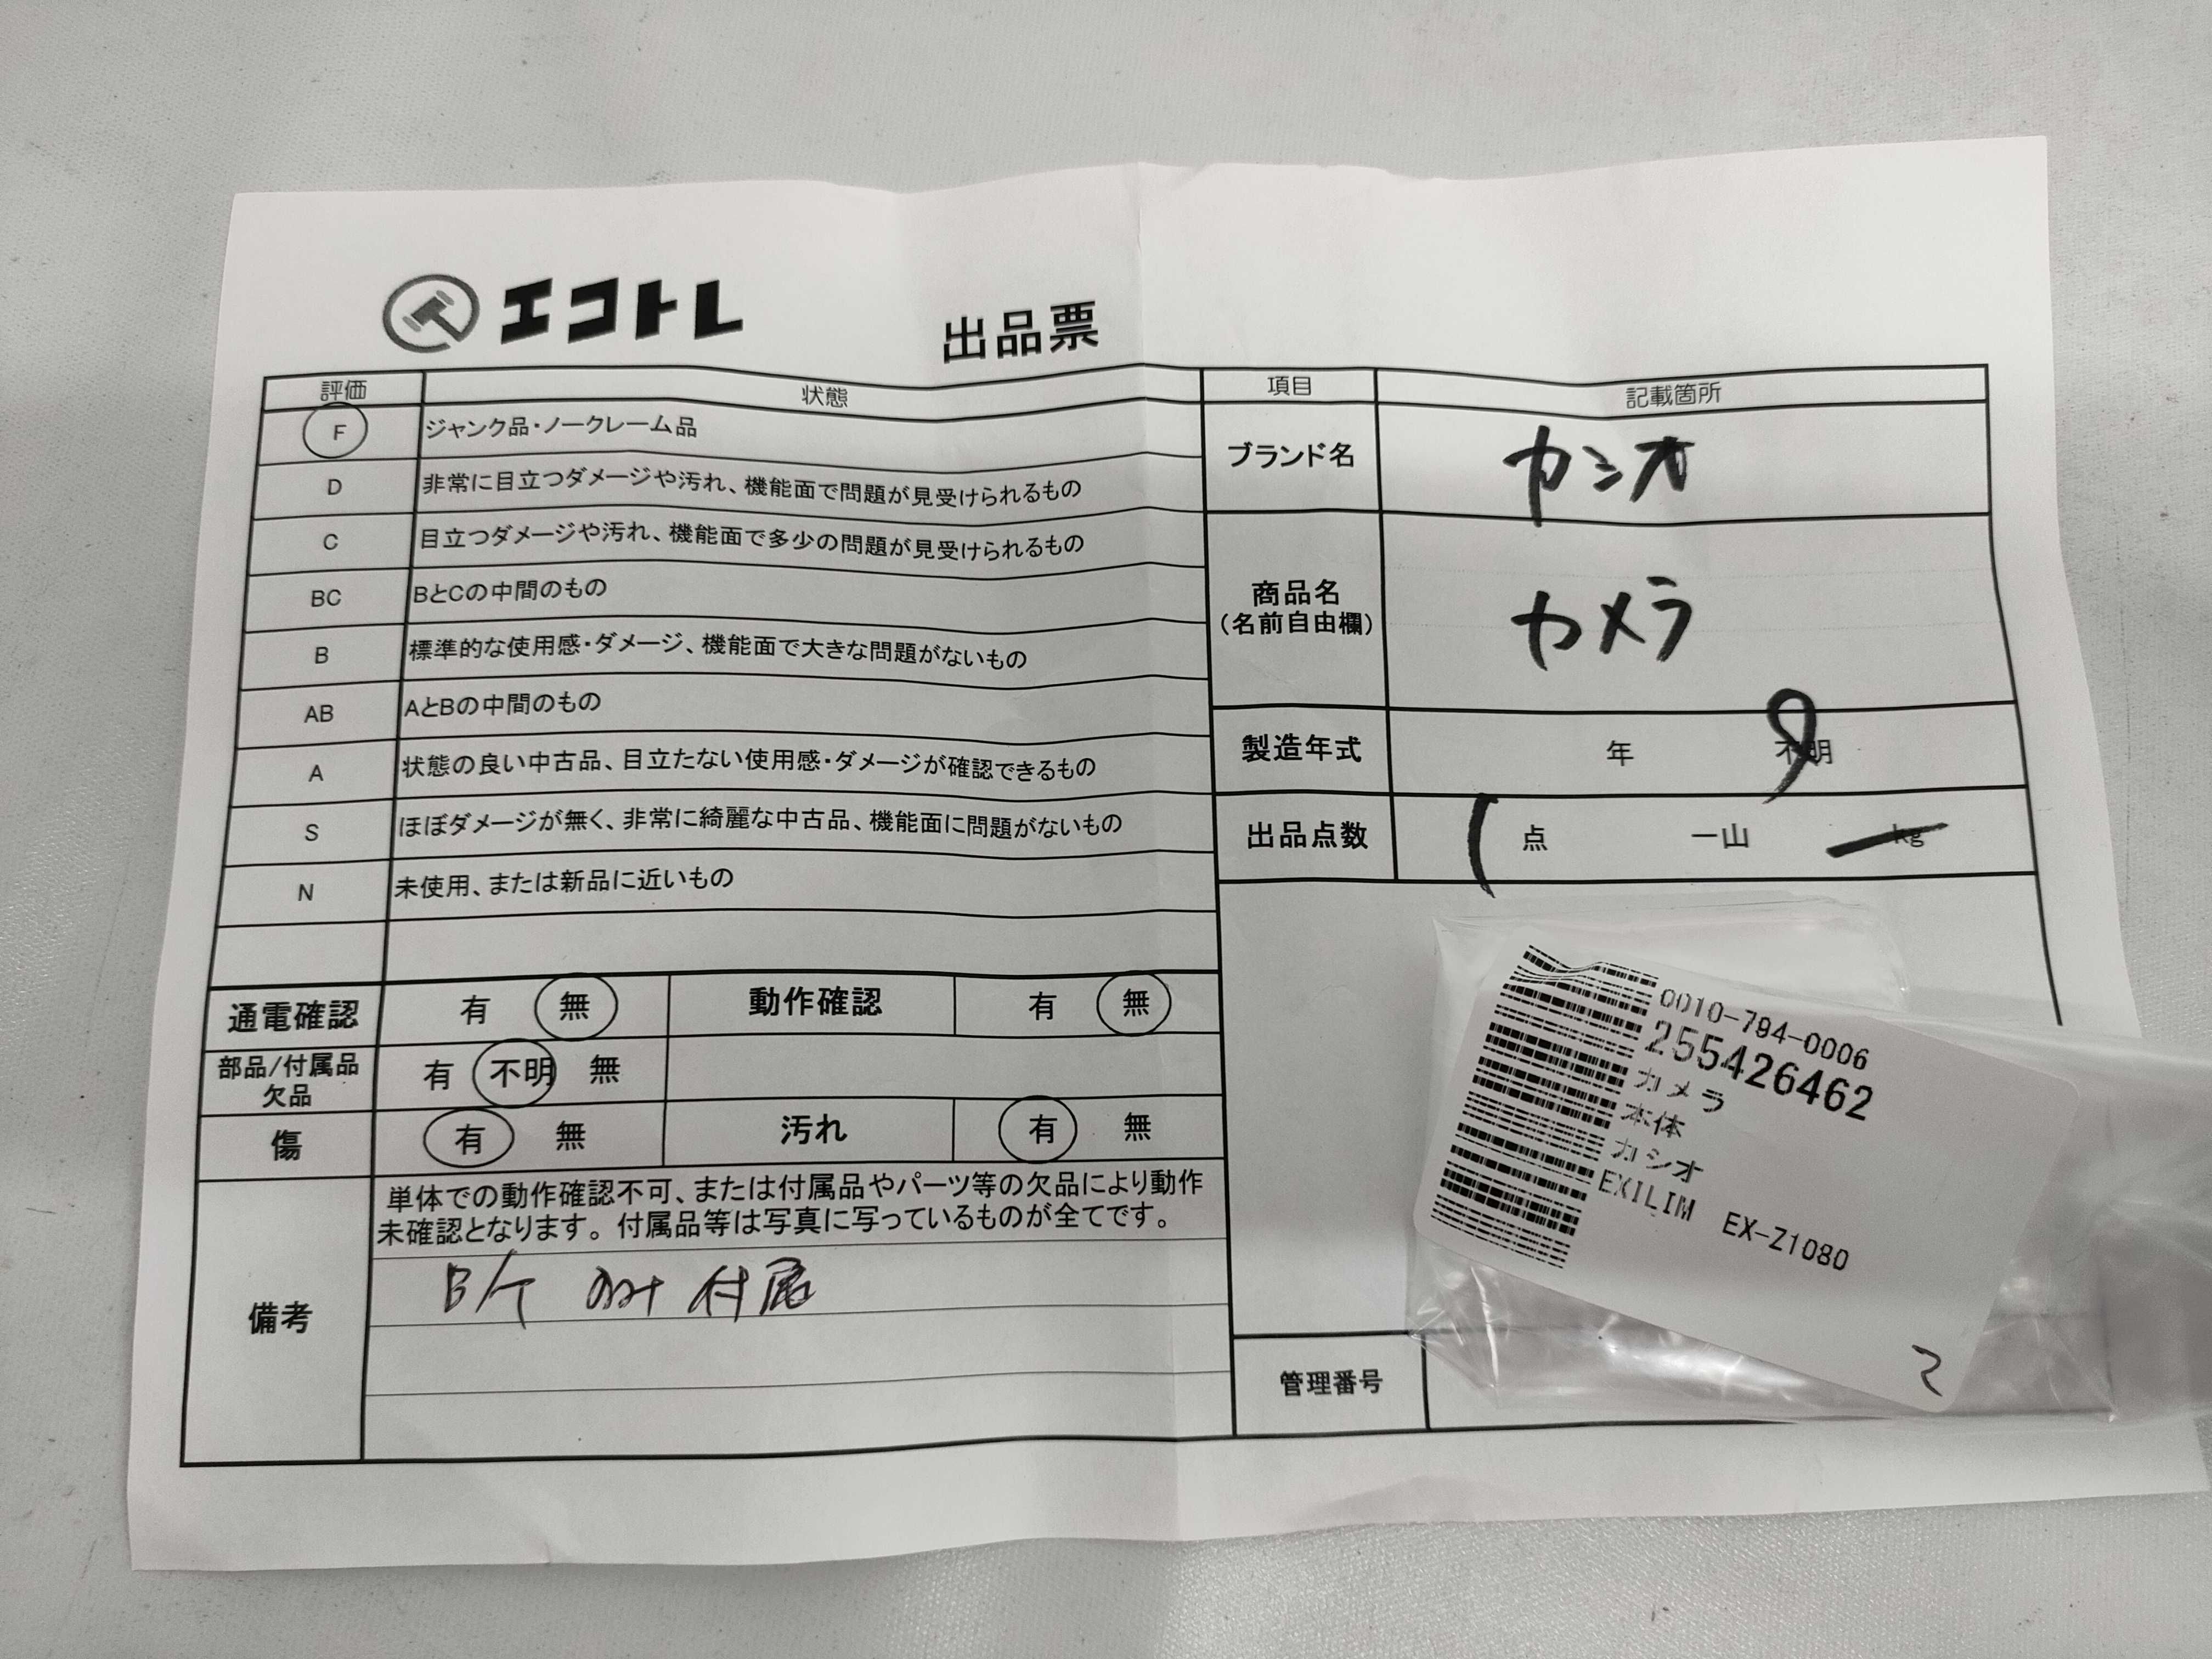 エコトレ
出品票
評価 状態
F ジャンク品・ノークレーム品
D 非常に目立つダメージや汚れ、機能面で問題が見受けられるもの
C 目立つダメージや汚れ、機能面で多少の問題が見受けられるもの
BC BとCの中間のもの
B 標準的な使用感・ダメージ、機能面で大きな問題がないもの
AB AとBの中間のもの
A 状態の良い中古品、目立たない使用感・ダメージが確認できるもの
S ほぼダメージが無く、非常に綺麗な中古品、機能面に問題がないもの
N 未使用、または新品に近いもの
通電確認 有 無 動作確認 有 無
部品/付属品
欠品
有 不明 無
傷 有 無 汚れ 有 無
備考
単体での動作確認不可、または付属品やパーツ等の欠品により動作
未確認となります。付属品等は写真に写っているものが全てです。
付属
項目 記載箇所
ブランド名 カシオ
商品名
(名前自由欄)
カメラ
製造年式 年 不明
出品点数 1 点 一山 kg
0010-794-0006
255426462
カメラ
本体
カシオ
EXILIM EX-Z1080
2
管理番号